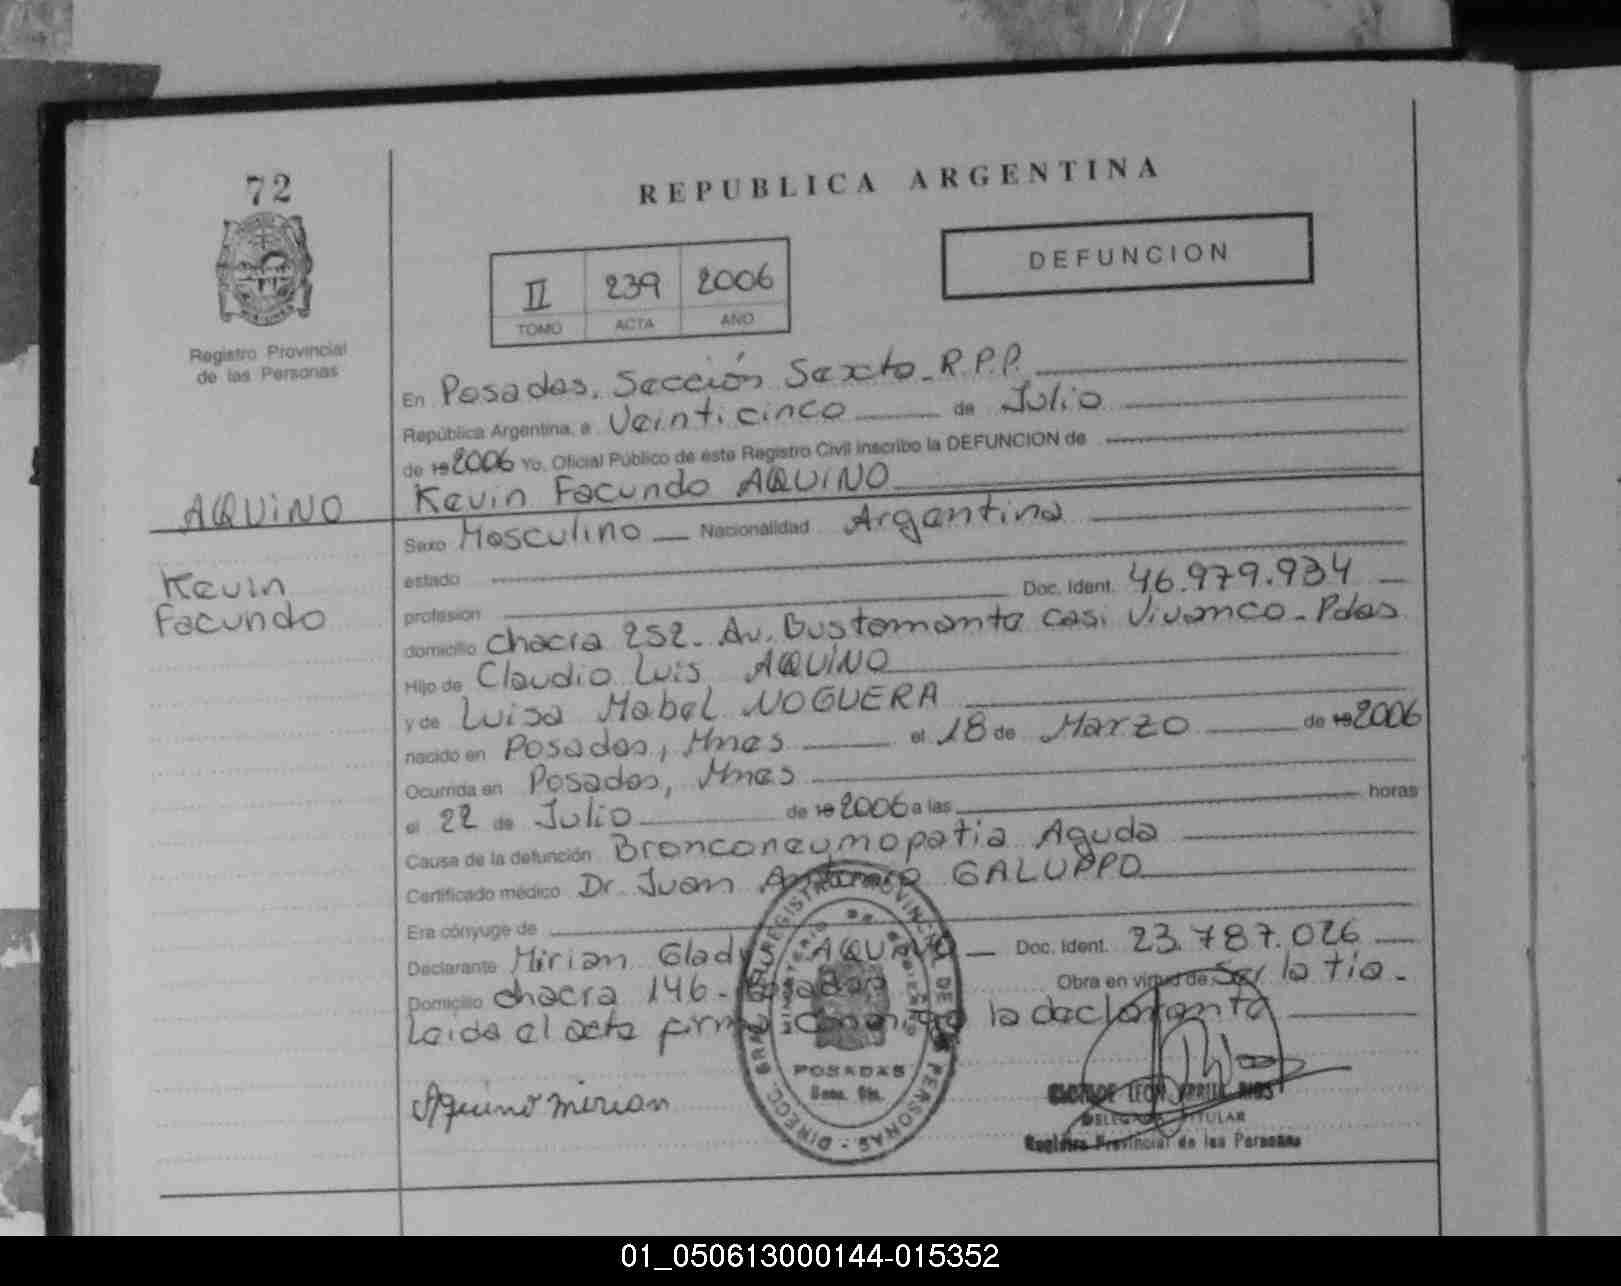 72
REPUBLICA ARGENTINA
Registro Provincial
de las Personas
II 239 2006
TOMO ACTA AÑO
DEFUNCION
En Posadas, Sección Sexta - R.P.P.
República Argentina, a Veinticinco de Julio
de 19 2006 Yo, Oficial Público de este Registro Civil inscribo la DEFUNCION de
AQUINO
Kevin Facundo AQUINO
Kevin
Facundo
Sexo Masculino Nacionalidad Argentina
estado
profesion Doc. Ident. 46.979.934
domicilio chacra 252 - Av. Bustamante casi Vivanco - Pdas
Hijo de Claudio Luis AQUINO
y de Luisa Mabel NOGUERA
nacido en Posadas, Mnes el 18 de Marzo de 19 2006
Ocurrida en Posadas, Mnes
el 22 de Julio de 19 2006 a las horas
Causa de la defunción Bronconeumopatia Aguda
Certificado médico Dr. Juan Antonio GALUPPO
Era cónyuge de
Declarante Mirian Gladys AQUINO Doc. Ident. 23.787.026
Domicilio chacra 146 - Posadas Obra en virtud de Ser la tia -
Leida el acta firma la declarante
Aquino Mirian
DIREC. GRAL. REGISTRO PROVINCIAL DE LAS PERSONAS
MINISTERIO DE GOBIERNO
POSADAS
DELEGADA TITULAR
Registro Provincial de las Personas
01_050613000144-015352